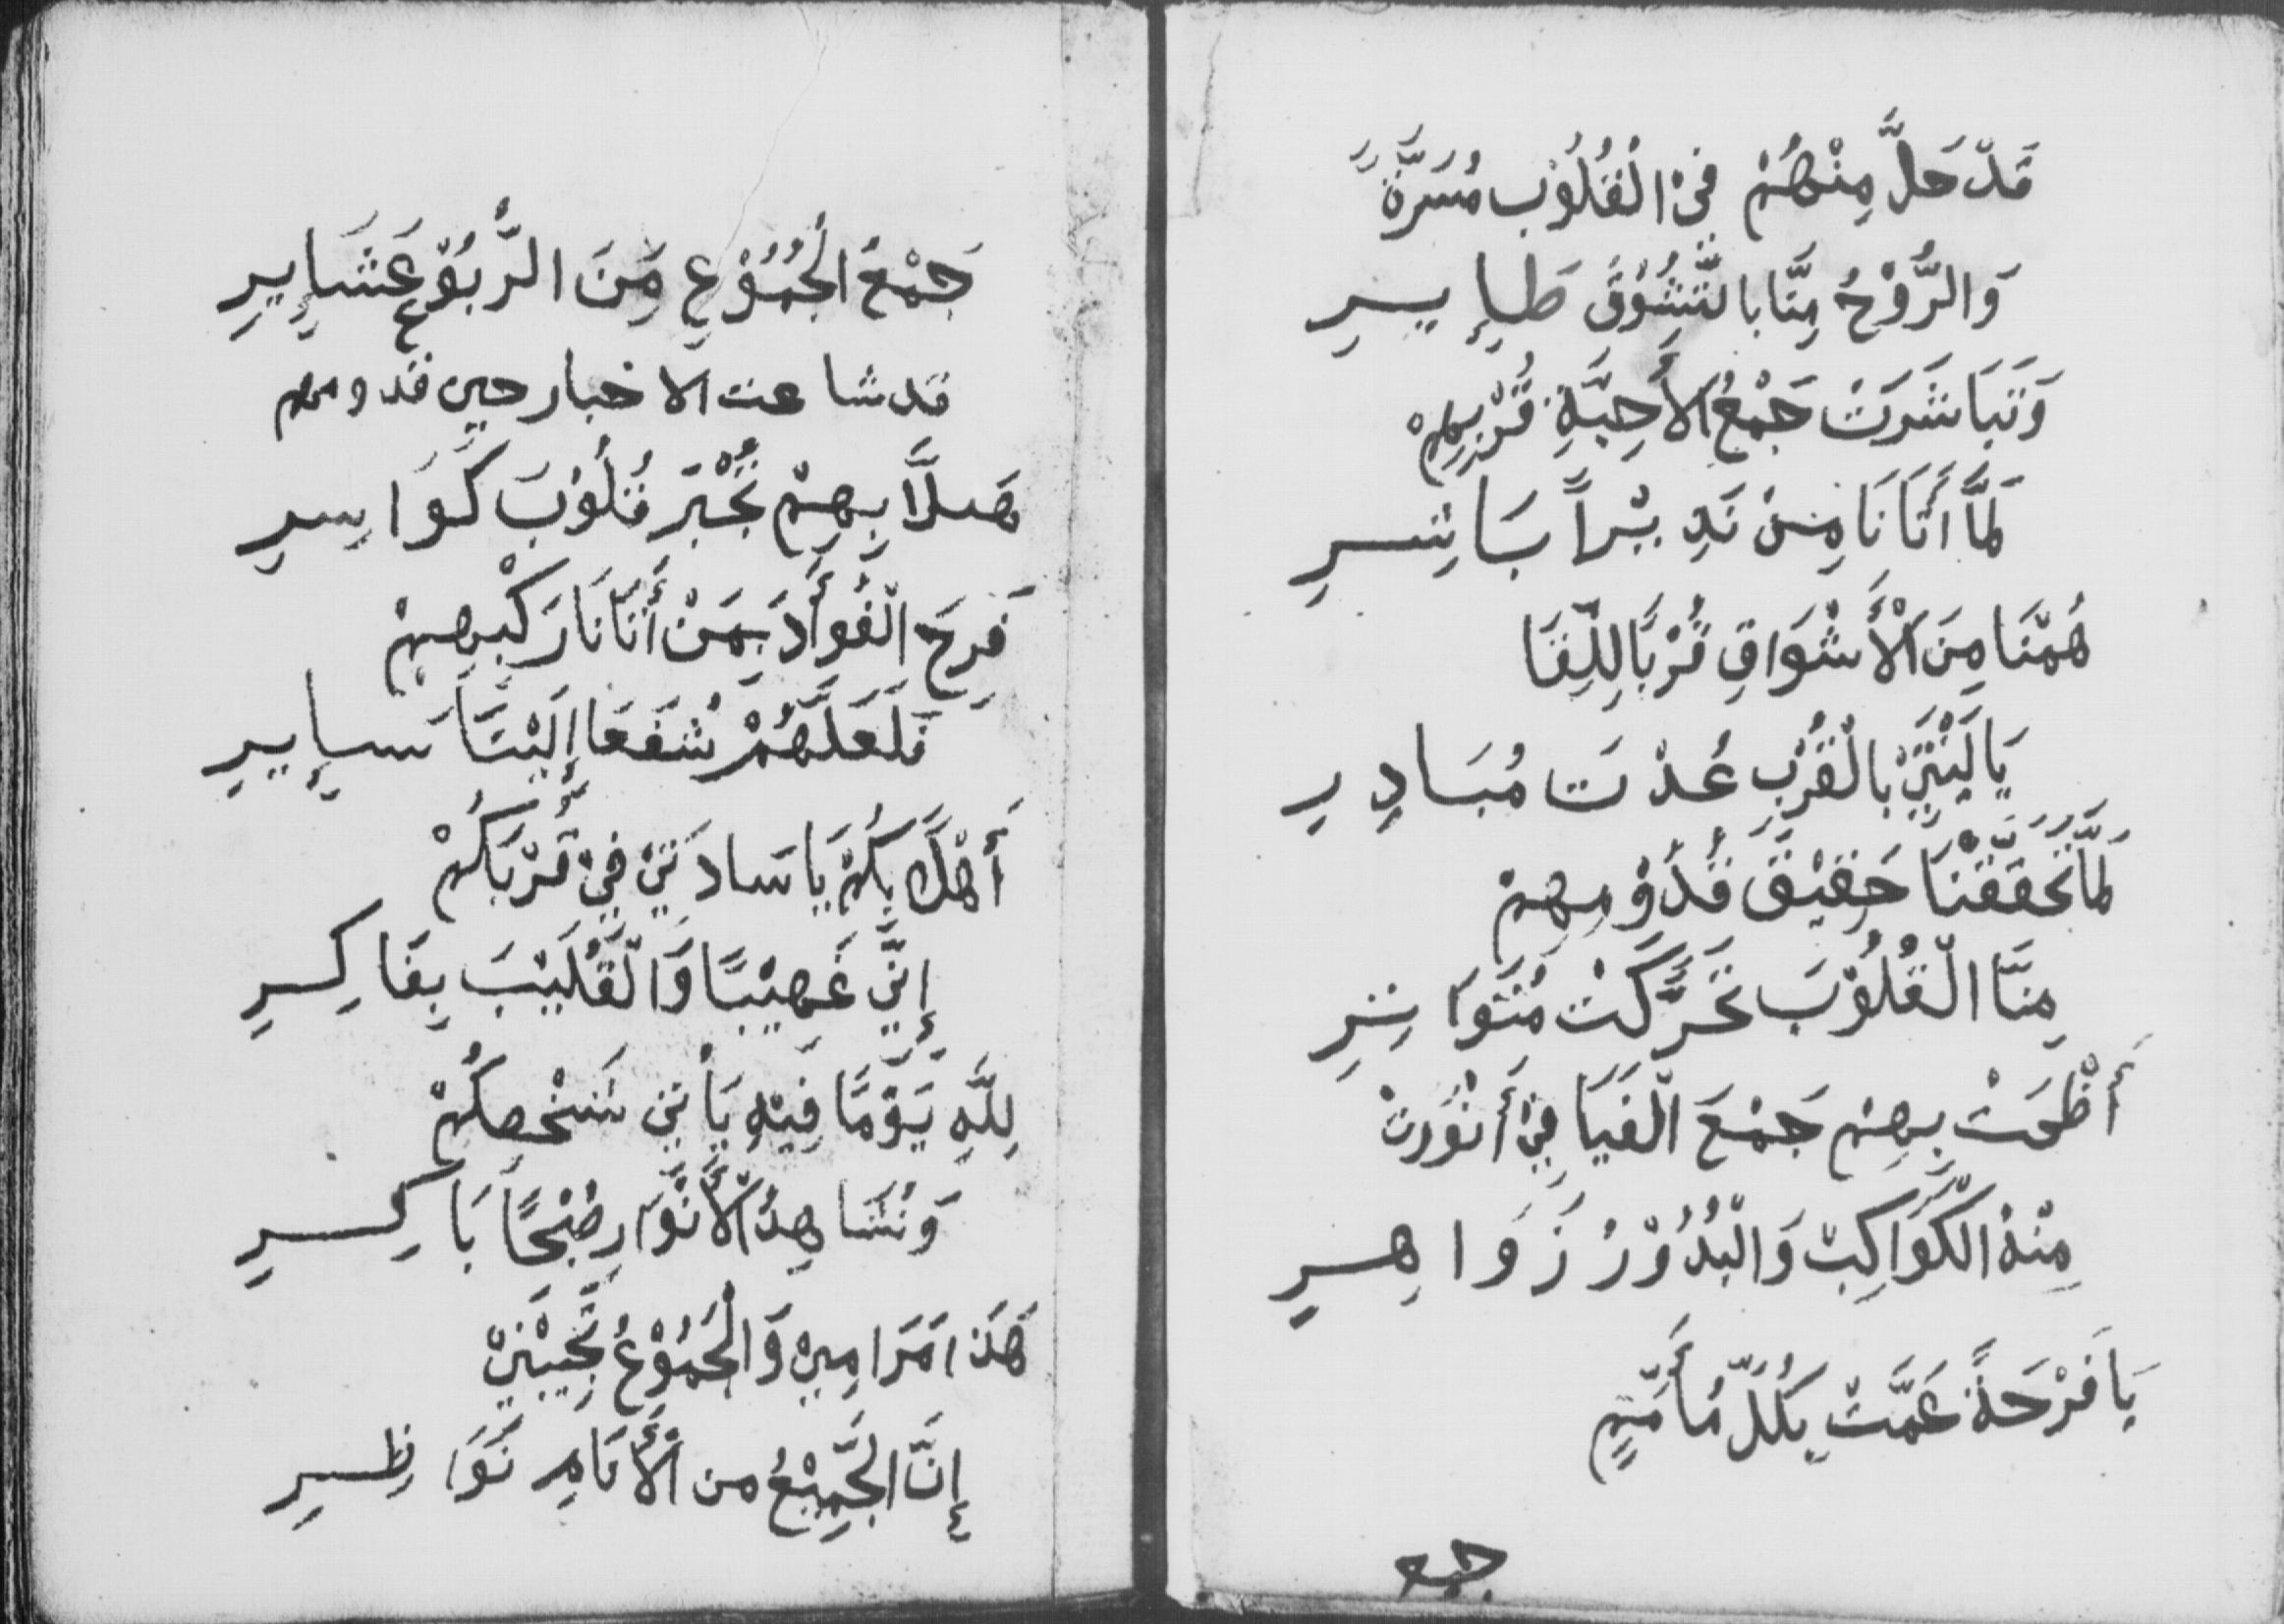 قَدْ حَلَّ مِنْهُمْ فِيْ الْقُلُوْبِ مُسَرَّةً
وَالرُّوْحُ مِنَّا بِالتَّشُوْقَ طَإِيرِ
وَتَبَاشَرَتْ جَمْعُ الأَحِبَّةِ قُرْبِهِمْ
لَمَّا أَتَانَا مِنْ نَدِيْراً بَاشِرِ
هُمْنَا مِنَ الْأَشْوَاقِ قُرْبًا لِلِّقَا
يَا لَيْتَنِيْ بِالْقُرْبِ عُدْتَ مُبَادِرِ
لَمَّا تَحَقَّقْنَا حَقِيْقَ قُدُوْمِهِمْ
مِنَّا الْقُلُوْبَ تَحَرَّكَتْ مُتَوَاتِرِ
أَظْحَتْ بِهِمْ جَمْعَ الْفَيَا فِيْ أَنْوَرَتْ
مِنْهُ الْكَوَاكِبْ وَالْبُدُوْرُ زَوَاهِرِ
يَا فَرْحَةً عَمَّتْ بِكُلِّ مُأَمِّمٍ
جمع
جَمْعُ الْجُمُوْعِ مِنَ الرُّبُوْعِ عَشَإِيرِ
قد شاعت الاخبار حين قدومهم
هَلَّا بِهِمْ نُجْبَرَ قُلُوْبَ كَوَاسِرِ
فَرِحَ الْفُوأَدَ بِمَنْ أَتَانَا رَكْبِهِمْ
فَلَعَلَّهُمْ شُفَعَا إِلَيْنَا سَإِيرِ
أَهْلَ بِكُمْ يَا سَادَتِيْ فِيْ قُرْبَكُمْ
إِنِّيْ غَهِيْبًا وَالْقَلَيْبَ بِفَاكِرِ
لِلَّهِ يَوْمًا فِيْهِ يَأْتِي شَخْصِكُمْ
وَنُشَاهِدُ الْأَنْوَارِ صُبْحًا بَاكِرِ
هَذَا مَرَامِيْ وَالْجُمُوْعُ تُجِيْبُنِيْ
إِنَّ الْجَمِيْعُ من الْأَنَامِ نَوَاظِرِ